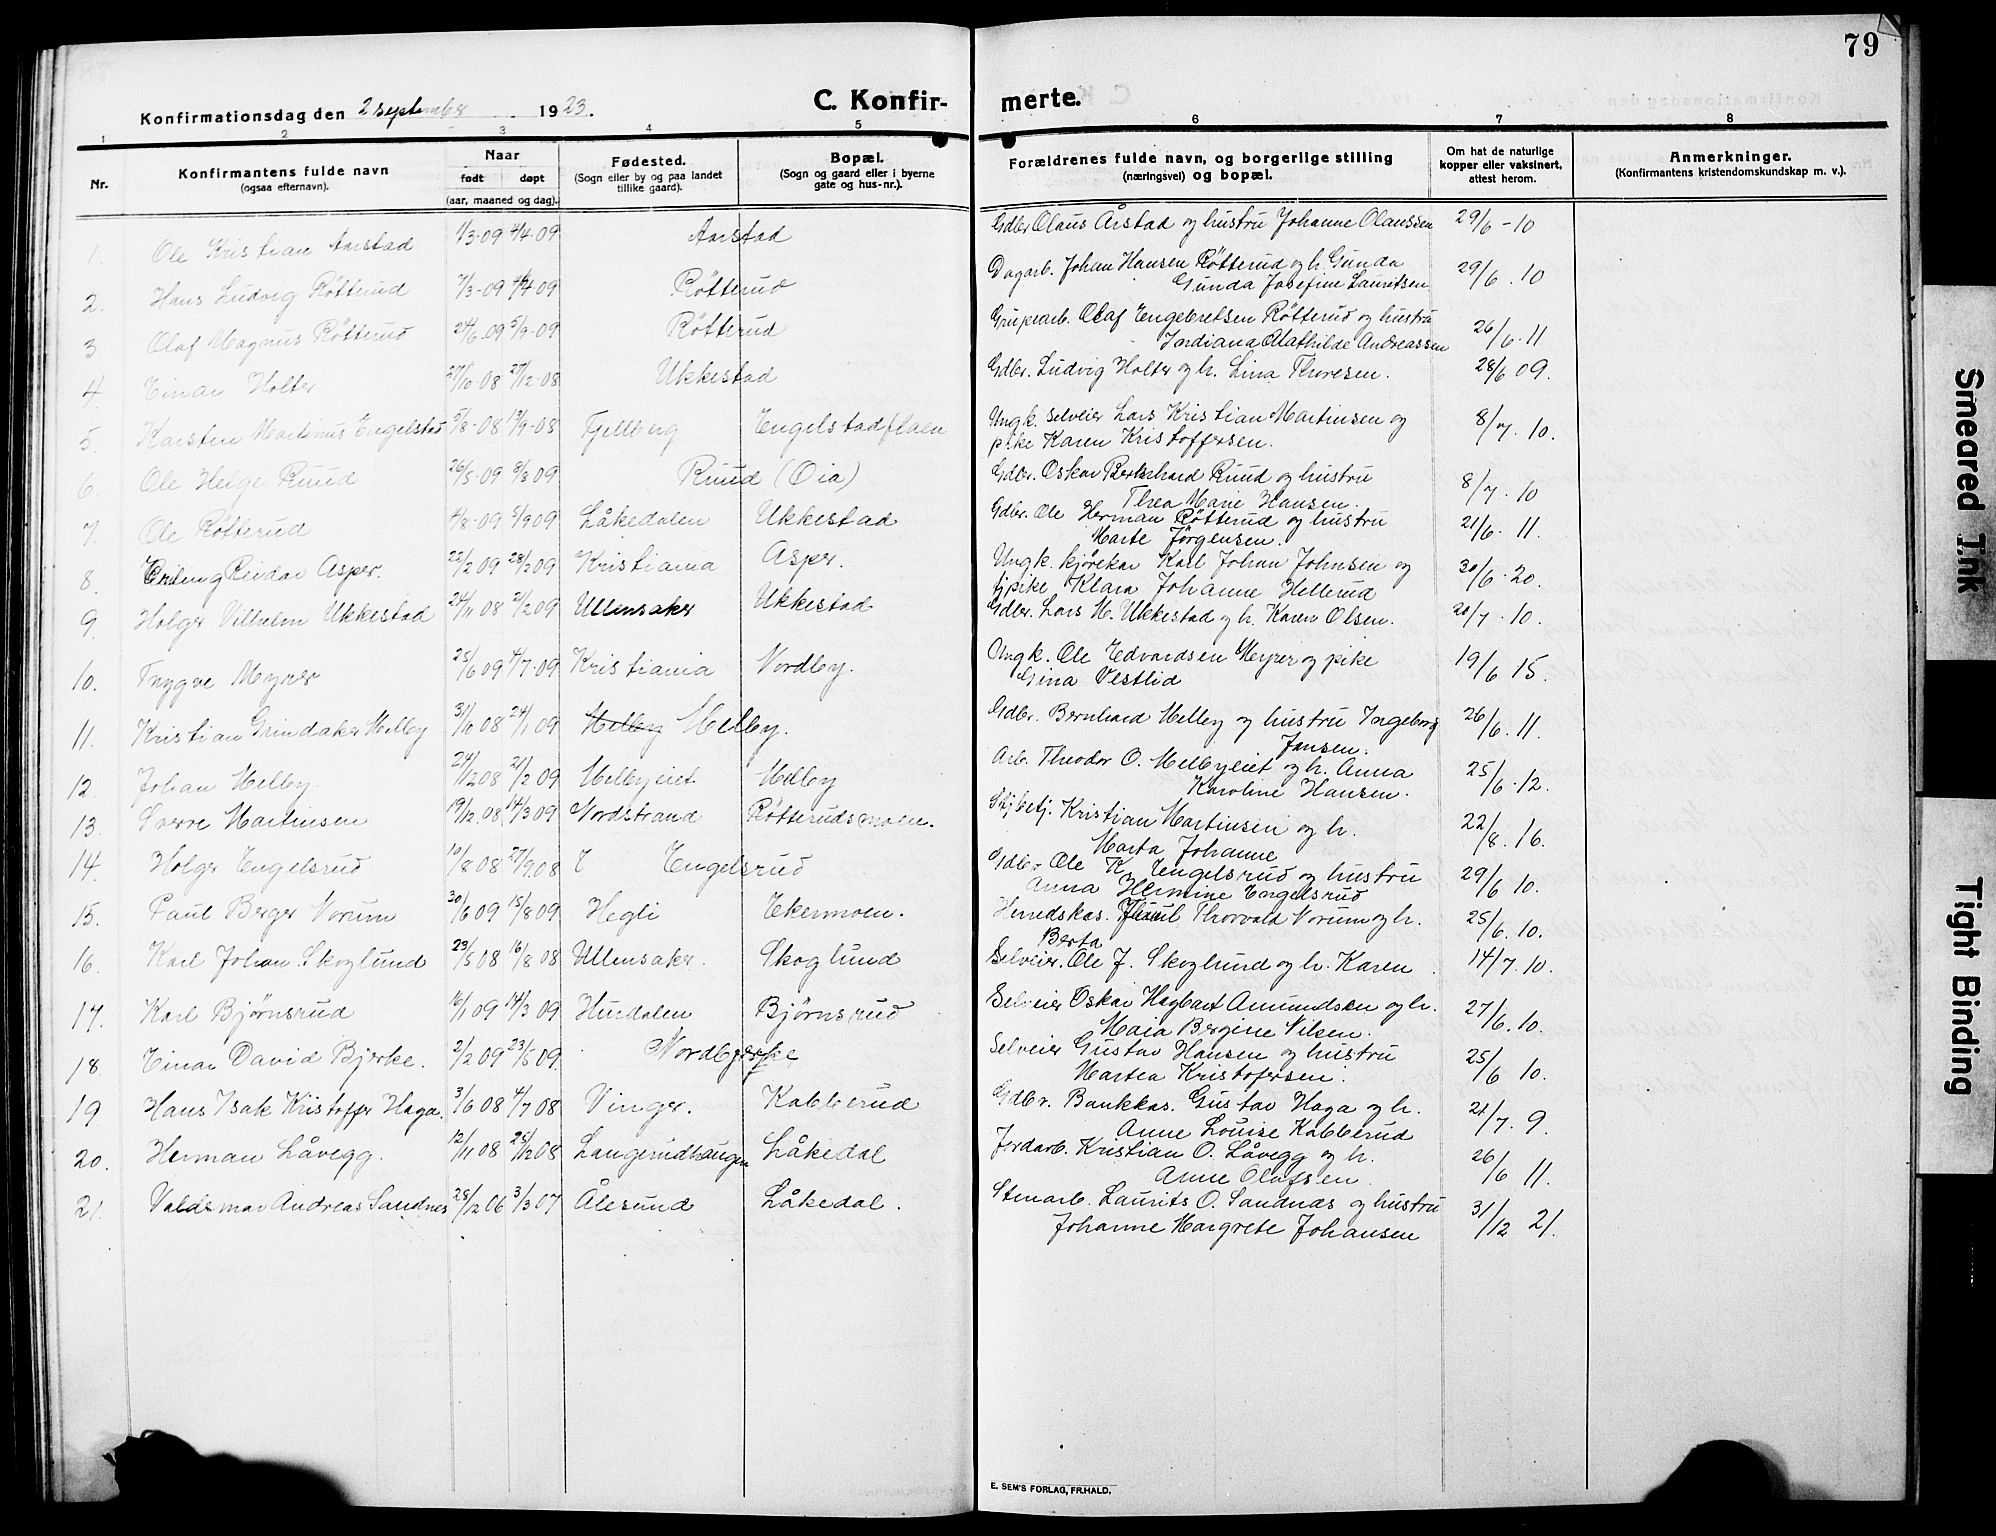 79
Konfirmationsdag den 2 september 1923.
C. Konfir-
merte.
1 2 3 4 5 6 7 8
Nr.
Konfirmantens fulde navn
(ogsaa efternavn).
Naar
født døpt
(aar, maaned og dag).
Fødested.
(Sogn eller by og paa landet
tillike gaard).
Bopæl.
(Sogn og gaard eller i byerne
gate og hus-nr.).
Forældrenes fulde navn, og borgerlige stilling
(næringsvei) og bopæl.
Om hat de naturlige
kopper eller vaksinert,
attest herom.
Anmerkninger.
(Konfirmantens kristendomskundskap m. v.).
1. Ole Kristian Aarstad 1/3-09 4/4-09 Aarstad Gdbr Olaus Årstad og hustru Johanne Olaussen 29/6-10
2. Hans Ludvig Røtterud 7/3-09 4/4 09 Røtterud Dagarb. Johan Hansen Røtterud og h. Gunda
Gunda Josefine Lauritsen 29/6 . 10
3 Olaf Magnus Røtterud 24/6.09 5/9-09 Røtterud Grupearb. Olaf Engebretsen Røtterud og hustru
Indiana Mathilde Andreassen 26/6.11
4. Einar Holter 27/10-08 27/12-08 Ukkestad Gdbr. Ludvig Holter og h. Lina Thoresen. 28/6 09.
5. Karsten Martinus Engelstad 5/8-08 13/9-08 Fjellberg Engelstadflaen Ungk. selveier Lars Kristian Martinsen og
pike Karen Kristoffersen. 8/7. 10.
6. Ole Helge Ruud 26/5-09 8/8 09 Ruud (Oia) Gdbr. Oskar Bernhard Ruud og hustru
Thea Marie Hansen. 8/7. 10
7. Ole Røtterud 4/8-09 5/9 09 Låkedalen Ukkestad Gdbr. Ole Herman Røtterud og hustru
Marte Jørgensen. 21/6. 11.
8. Erling Reidar Asper. 22/2 09 28/2 09 Kristiania Asper. Ungk. kjørekar Karl Johan Johnsen og
tjpike Klara Johanne Hellerud 30/6.20.
9. Holger Vilhelm Ukkestad 24/11 08 21/2 09 Ullensaker Ukkestad Gdbr. Lars M. Ukkestad og h. Karen Olsen. 20/7.10.
10. Trygve Myrer 25/6 09 4/7-09 Kristiania Nordby. Ungk. Ole Edvardsen Myrer og pike
Gina Vestlid 19/6 15.
11. Kristian Grindaker Melby 31/10 08 24/1 09 Melby Melby. Gdbr. Bernhard Melby og hustru Ingeborg
Jensen. 26/6.11.
12. Johan Melby. 24/12 08 21/2 09 Melbyeiet Melby Arb. Theodor O. Melbyeiet og h. Anna
Karoline Hansen. 25/6.12.
13. Sverre Martinsen 19/12 08 14/3 09 Nordstrand Røtterudsmoen. Stjbetj. Kristian Martinsen og h.
Marta Johanne 22/8. 16.
14. Holger Engelsrud 10/8 08 27/9 08 E Engelsrud Gdbr. Ole K. Engelsrud og hustru
Anna Hermine Engelsrud 29/6 10.
15. Paul Berger Vorum 30/6 09 15/8 09 Hegli Ekermoen. Herredskas. Paul Thorvald Vorum og h.
Berta 25/6. 10.
16. Karl Johan Skoglund 23/5 08 16/8 08 Ullensaker. Skoglund Selveier. Ole J. Skoglund og h. Karen . 14/7.10.
17. Karl Bjørnsrud 16/1 09 14/3 09 Hurdalen Bjørnsrud Selveier Oskar Hagbart Amundsen og h.
Maia Bergine Nilsen. 27/6.10.
18. Einar David Bjerke. 2/2 09 23/5 09. Nordbjerke Selveier Gustav Hansen og hustru
Martea Kristofersen. 25/6 10.
19 Hans Isak Kristoffer Haga. 3/6 08 4/7 08 Vinger. Kabberud Gdbr. Bankkas. Gustav Haga og h.
Anne Louise Kabberud 21/7. 9.
20. Herman Låvegg. 12/11 08 25/12 08 Langerudhaugen Låkedal Jordarb. Kristian O. Låvegg og h.
Anne Olafsen. 26/6 11.
21. Valdemar Andreas Sandnes 28/12 06 3/3 07 Ålesund Låkedal. Stenarb. Laurits O. Sandnes og hustru
Johanne Margrete Johansen 31/12 21.
E. SEM'S FORLAG, FR.HALD.
Smeared Ink
Tight Binding